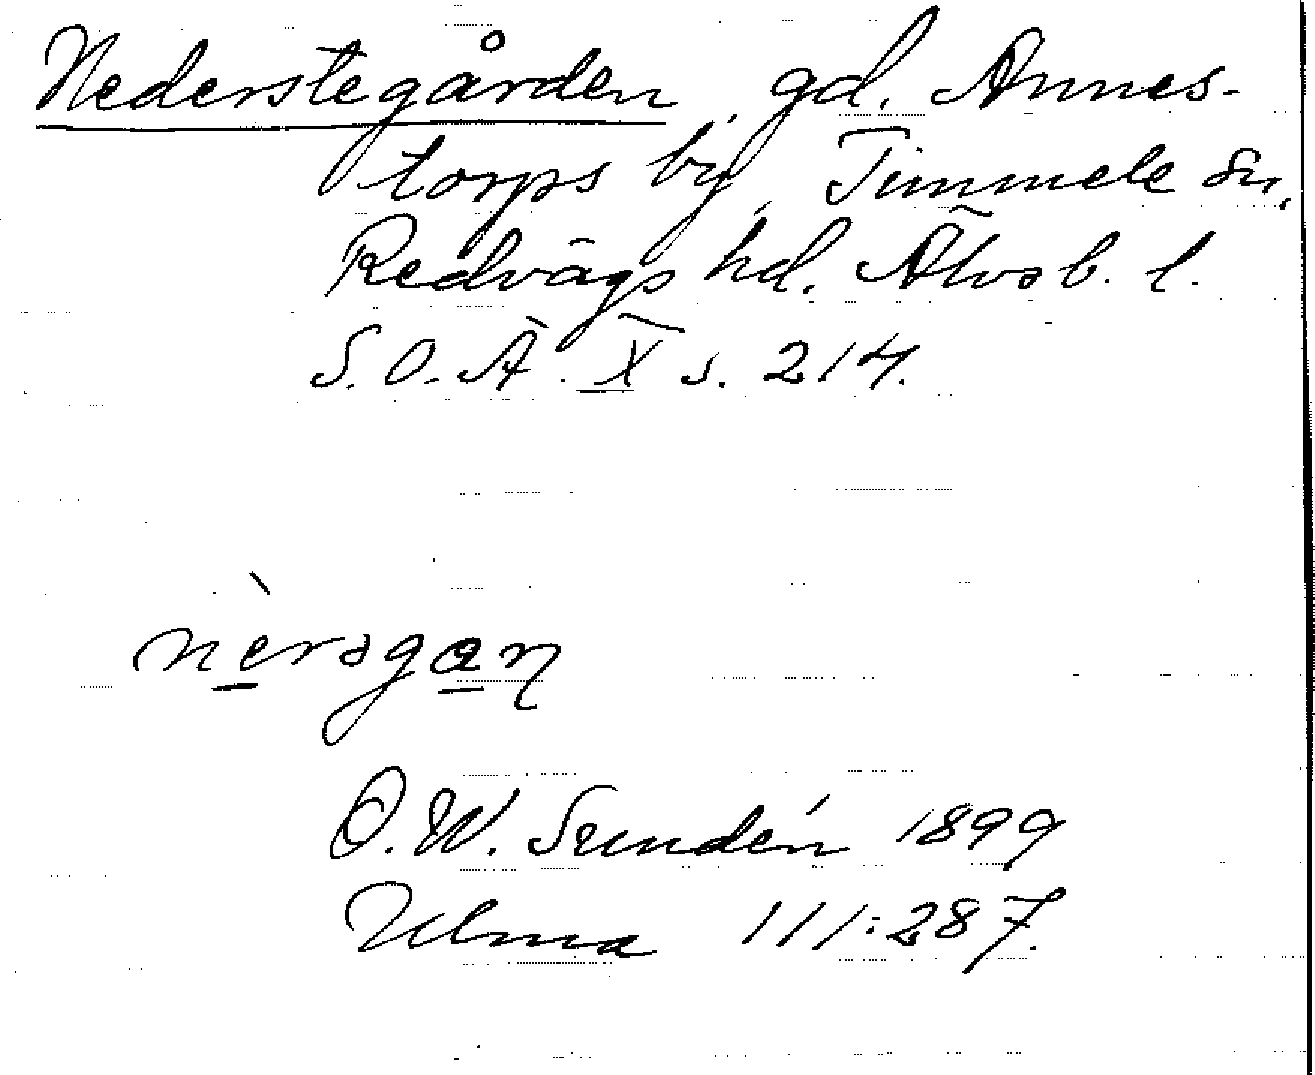 Nederstegården, gd. Annes-
torps by, Timmele sn,
Redvägs hd. Älvsb. l.
S. O. Ä. X s. 214.
nèrəgan
D. W. Sundén 1899
Ulma 111:287.